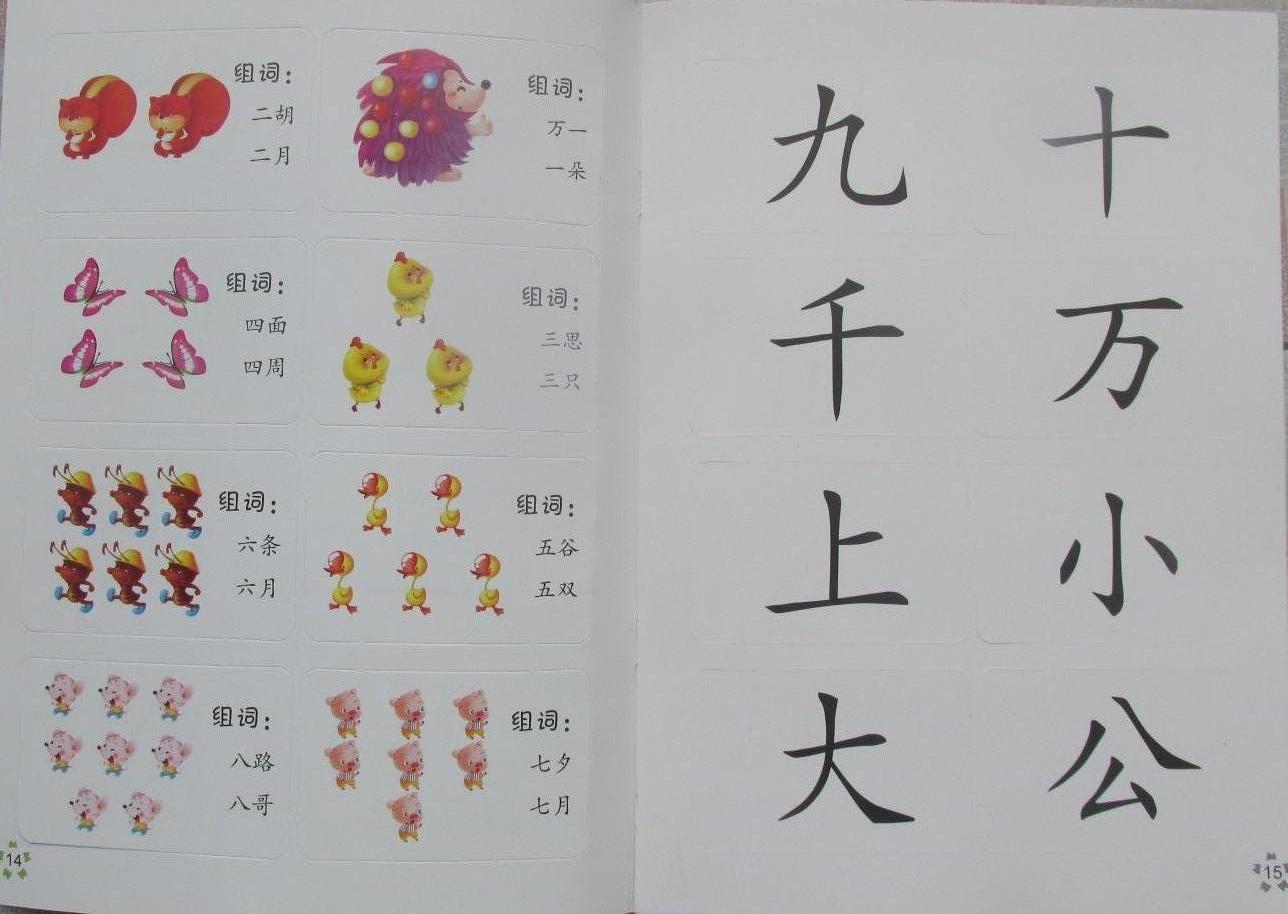 组词：
二胡
二月
组词：
万一
一朵
组词：
四面
四周
组词：
三思
三只
组词：
六条
六月
组词：
五谷
五双
组词：
八路
八哥
组词：
七夕
七月
14
九 十
千 万
上 小
大 公
15